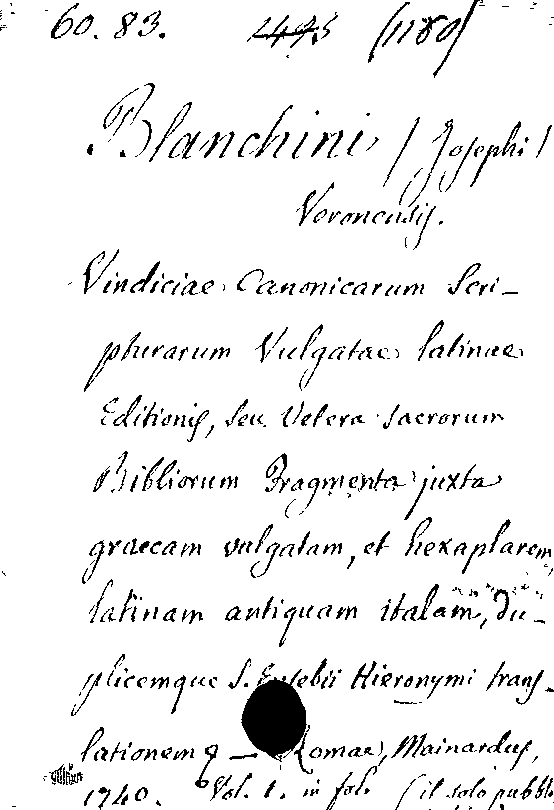 60. 83. 1445 (1180)
Blanchini / Josephi /
Veronensis.
Vindiciae Canonicarum Scri-
pturarum Vulgatae latinae
Editionis, seu Vetera sacrorum
Bibliorum Fragmenta juxta
graecam vulgatam, et hexaplarem,
latinam antiquam italam, du-
plicemque S. Eusebii Hieronymi trans-
lationem — Romae, Mainardus,
1740. Vol. 1. in fol. (il solo pubbl